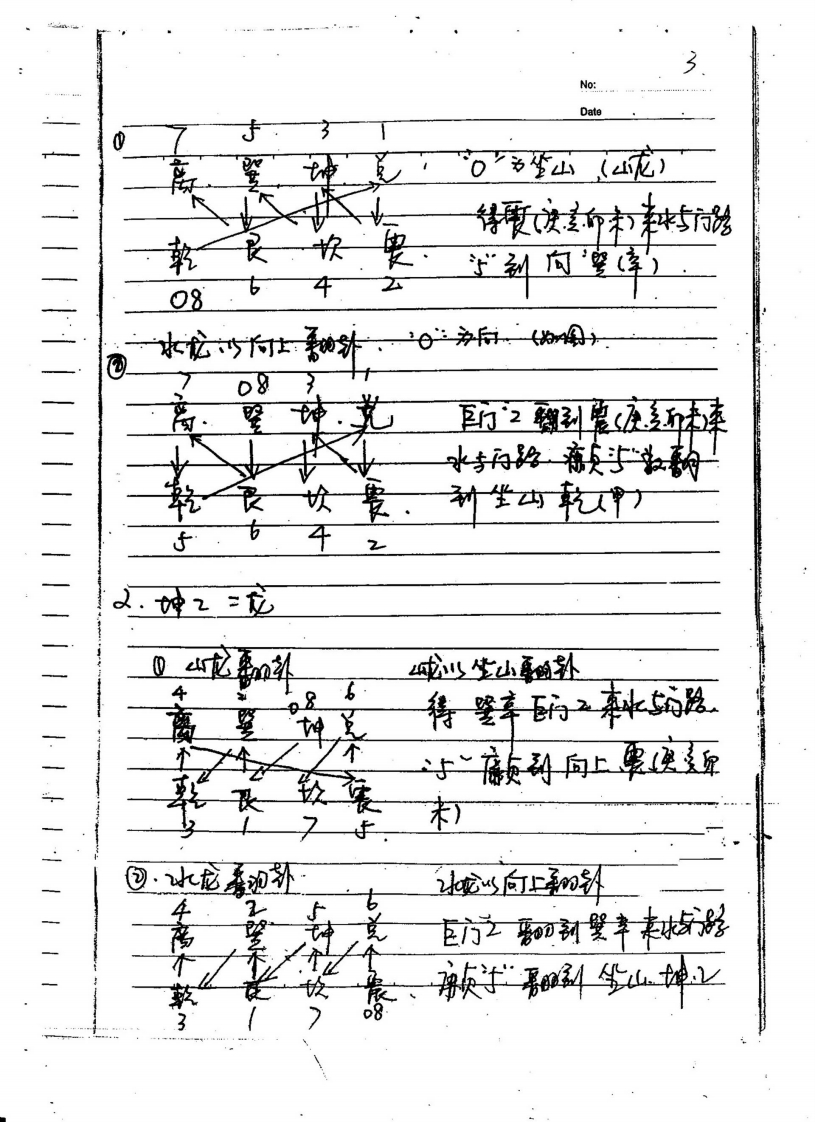 3.
No:
Date
① 7 5 3 1
离. 巽. 坤. 兑. "0"为坐山 (山龙)
得震(庚亥卯未)来水与门路
乾 艮 坎 震. "5"到向 巽(辛)
08 6 4 2
水龙以向上翻卦. "0"为向. (如图)
② 7 08 3 1
离. 巽 坤. 兑 巨门"2"翻到震(庚亥卯未)来
水与门路. 廉贞"5"数翻
乾 艮 坎 震. 到坐山乾(甲)
5 6 4 2
2. 坤乙二龙
① 山龙翻卦 山龙以坐山翻卦
4 2 08 6
离 巽 坤 兑 得巽辛巨门2来水与门路.
"5"廉贞到向上震(庚亥卯
乾 艮 坎 震 未)
3 1 7 5.
②. 水龙翻卦 水龙以向上翻卦
4 2 5 6
离 巽 坤 兑 巨门2翻到巽辛来水与门路
乾 艮 坎 震. 廉贞"5"翻到坐山.坤.乙
3 1 7 08